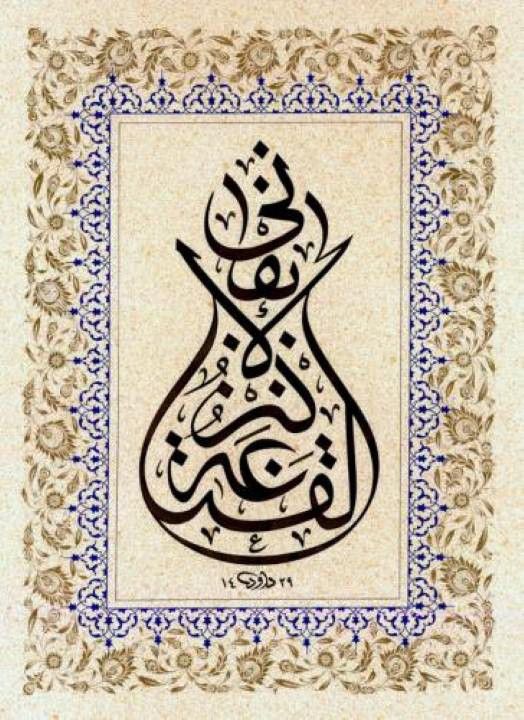 القناعة كنز لا يفنى
داود ١٤٢٩